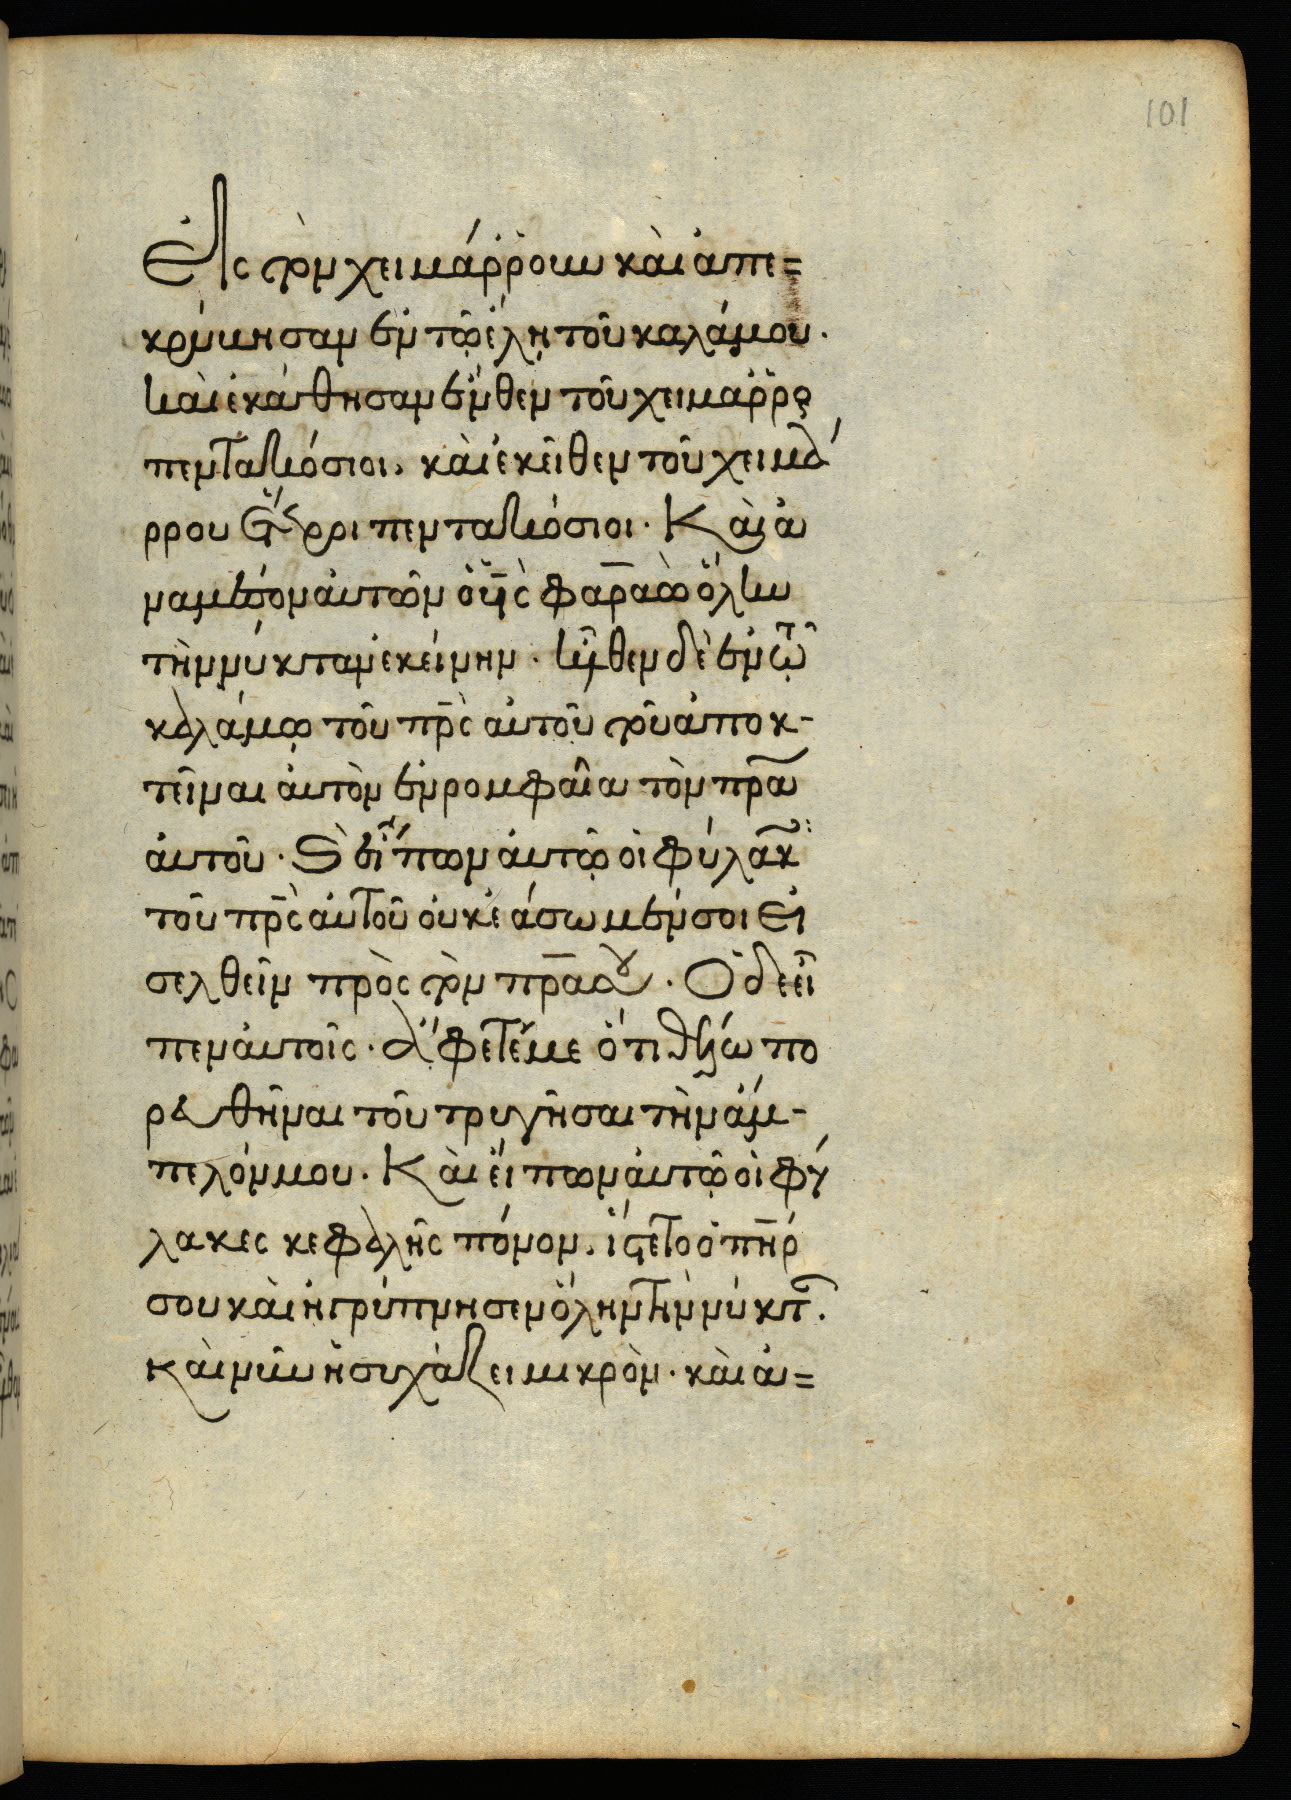 101
Εἰς τὸν χειμάρρουν καὶ ἀπε=
κρύβησαν ἐν τῷ ἕλη τοῦ καλάμου.
καὶ ἐκάθησαν ἔνθεν τοῦ χειμάρρου
πεντακόσιοι. καὶ ἐκεῖθεν τοῦ χειμά
ρρου ἕτεροι πεντακόσιοι. Καὶ ἀ
ναμέσον αὐτῶν ὁ υἱὸς φαραὼ ὅλην
τὴν νύκταν ἐκείνην. ἦλθεν δὲ ἐν τῷ
καλάμῳ τοῦ πρς αὐτοῦ τοῦ ἀποκ-
τεῖναι αὐτὸν ἐν ρομφαία τὸν πρα
αὐτοῦ. καὶ εἶπον αὐτῷ οἱ φύλακες
τοῦ πρς αὐτοῦ οὐκ ἐάσωμέν σοι εἰ
σελθεῖν πρὸς τὸν πρα σου. Ὁ δὲ εἶ
πεν αὐτοῖς. ἄφετέ με ὅτι θέλω πο
ρευθῆναι τοῦ τρυγῆσαι τὴν ἄμ-
πελόν μου. Καὶ εἶπον αὐτῷ οἱ φύ
λακες κεφαλῆς πόνον. ἵστετο ὁ πηρ
σου καὶ ἠγρύπνησεν ὅλην τὴν νύκτα.
καὶ νῦν ἡσυχάζει μικρὸν. καὶ ἀ=